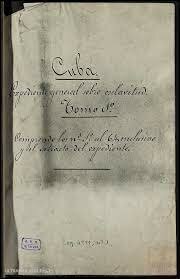 Cuba
Expediente general sobre esclavitud.
Tomo 1º
Comprende los nos 1º al 64 inclusive
y el extracto del expediente.